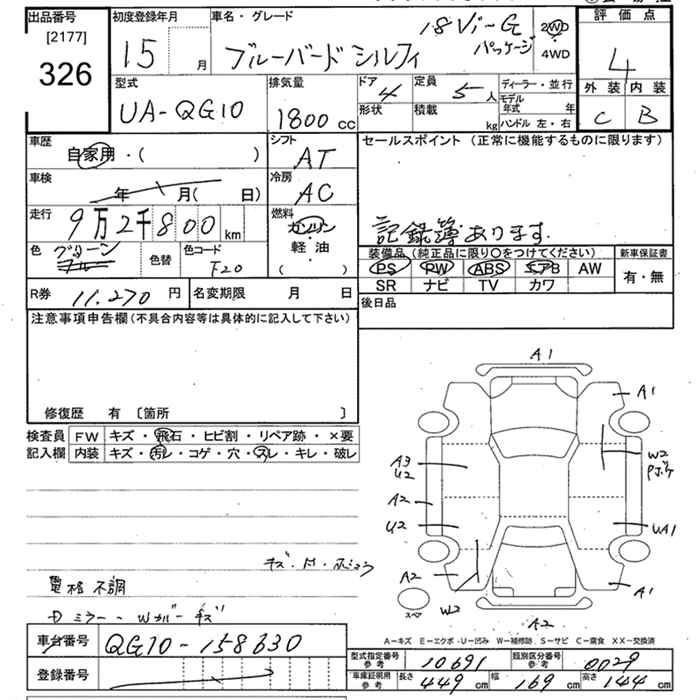 出品番号
[2177]
326
初度登録年月
15 月
車名・グレード
ブルーバード シルフィ
18Vi-G
パッケージ
2WD
4WD
評価点
4
外装 内装
C B
型式
UA-QG10
排気量
1800 cc
ドア 4
定員 5 人
形状
積載 kg
ディーラー・並行
モデル年式 年
ハンドル 左・右
車歴
自家用・( )
シフト
AT
セールスポイント(正常に機能するものに限ります)
記録簿あります.
車検
年 月( 日)
冷房
AC
走行
9万2千800 km
燃料
ガソリン
軽・油
( )
色
グリーン
色替
色コード
F20
装備品(純正品に限り〇をつけてください)
PS PW ABS エアB AW
SR ナビ TV カワ
新車保証書
有・無
R券 11.270 円
名変期限 月 日
後日品
注意事項申告欄(不具合内容等は具体的に記入して下さい)
修復歴 有 〔箇所 〕
検査員
記入欄
FW キズ・飛石・ヒビ割・リペア跡・×要
内装 キズ・汚レ・コゲ・穴・スレ・キレ・破レ
A1
A1
A3
U2
W2
A2
U2
UA1
A2
W2
A1
スペア
A2
電格 不調
Dミラー・Wカバーキズ
A-キズ E-エクボ・U-凹み W-補修跡、S-サビ C-腐食 XX-交換済
車台番号
QG10-158630
登録番号
型式指定番号
参考
10691
類別区分番号
参考
0029
車庫証明用
参考
長さ 449 cm
幅 169 cm
高さ 144 cm